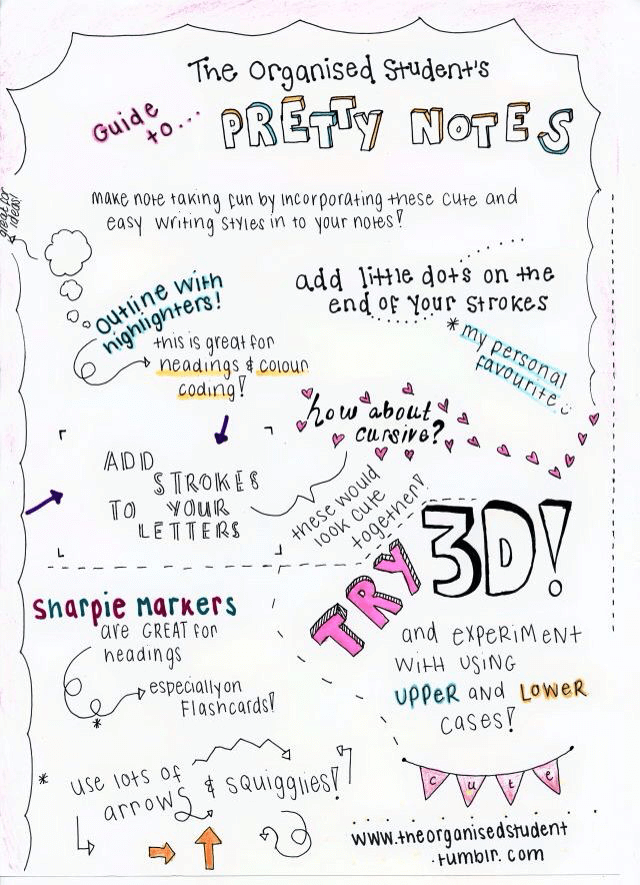 The Organised Student's
Guide to...
PRETTY NOTES
make note taking fun by incorporating these cute and
easy writing styles in to your notes!
great for
ideas!
outline with
highlighters!
this is great for
headings & colour
coding!
add little dots on the
end of your strokes
* my personal
favourite
how about
cursive?
ADD
STROKES
TO YOUR
LETTERS
these would
look cute
together!
TRY 3D!
and EXPERiMENT
WITH USING
UPPER and LOWER
CASES!
Sharpie Markers
are GREAT for
headings
especially on
Flashcards!
*
* use lots of
arrows & squigglies!
cute
www.theorganisedstudent
.tumblr.com